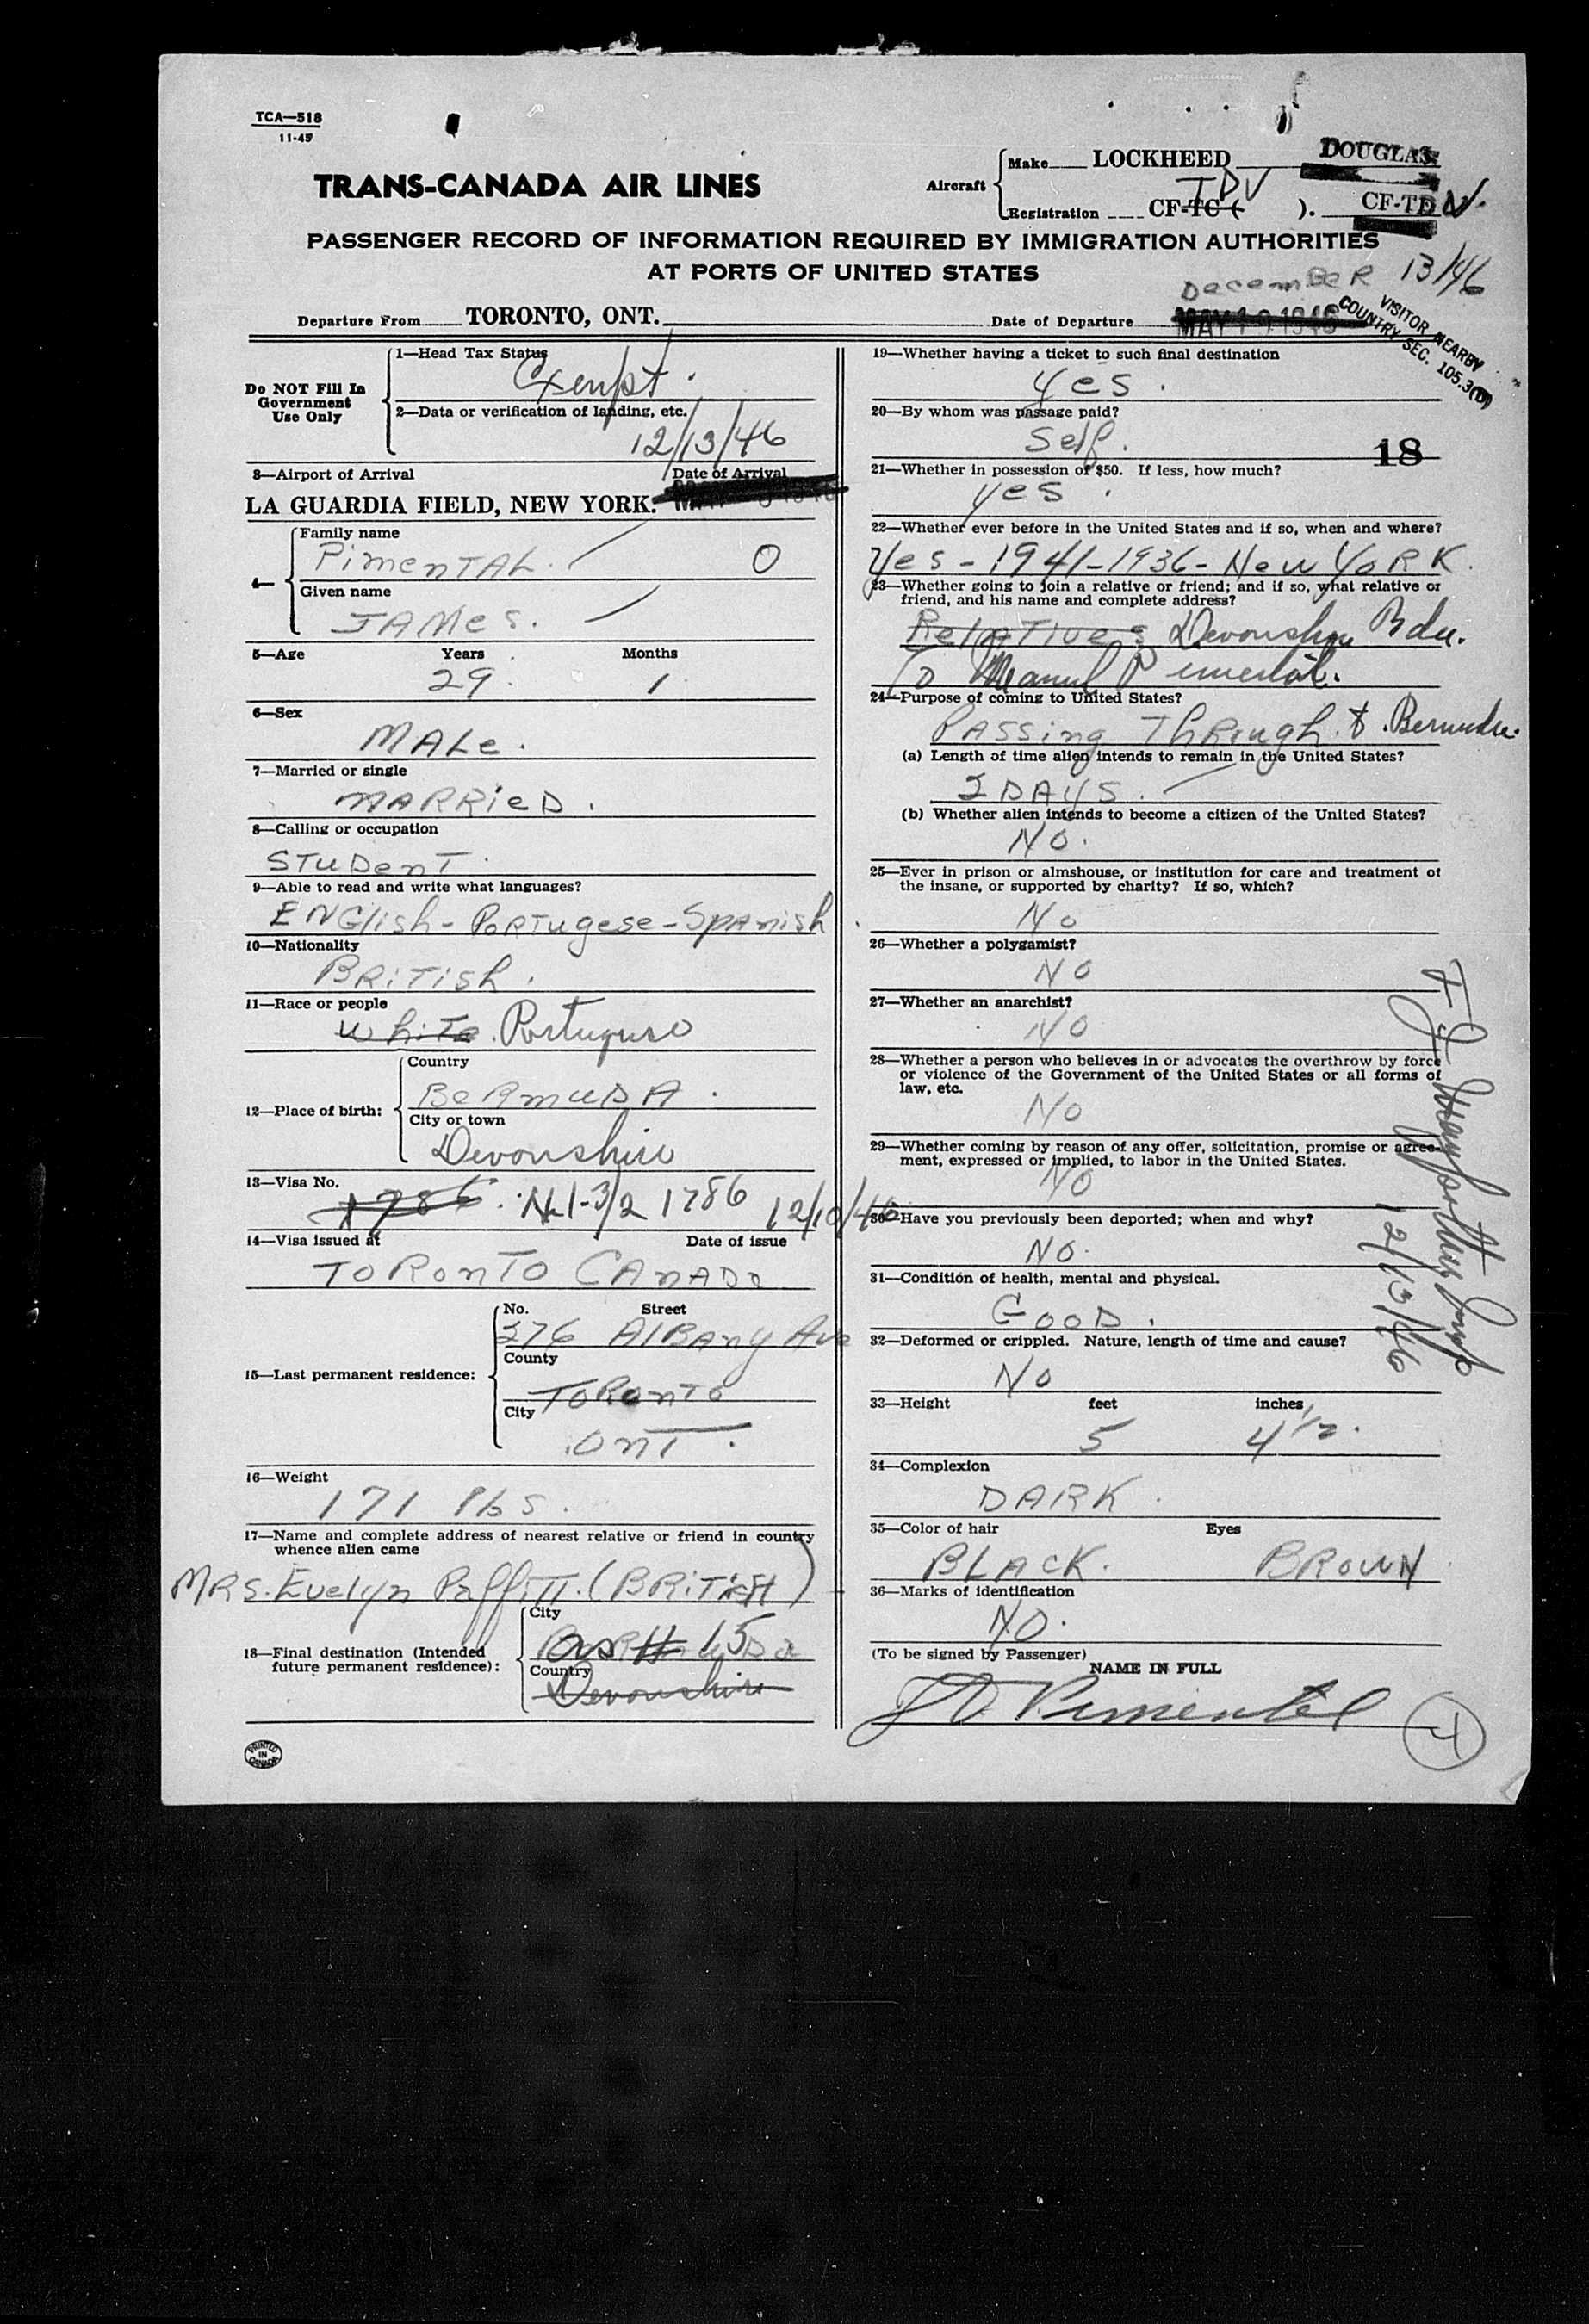 TCA—518
11-45
TRANS-CANADA AIR LINES
Aircraft
Make LOCKHEED DOUGLAS
Registration CF-TC ( ). TDV CF-TD V.
PASSENGER RECORD OF INFORMATION REQUIRED BY IMMIGRATION AUTHORITIES
AT PORTS OF UNITED STATES
December 13/46
Departure From TORONTO, ONT. Date of Departure MAY 19 1946
VISITOR NEARBY
COUNTRY SEC. 105.3(b)
Do NOT Fill In
Government
Use Only
1—Head Tax Status
Exempt.
2—Data or verification of landing, etc.
12/13/46
3—Airport of Arrival Date of Arrival
LA GUARDIA FIELD, NEW YORK.
4—
Family name
PimenTAL. O
Given name
JAMes.
5—Age Years Months
29. 1
6—Sex
MALe.
7—Married or single
MARRieD.
8—Calling or occupation
STuDenT.
9—Able to read and write what languages?
ENGlish - PoRTugese - SpAnish
10—Nationality
BRiTish.
11—Race or people
WhiTe. Portuguese
12—Place of birth:
Country
BeRmuDA.
City or town
Devonshire
13—Visa No.
1786. 1786 12/10/46
14—Visa issued at Date of issue
ToRonTo CAnADa
15—Last permanent residence:
No. Street
276 AlBAny Ave
County
ToRonTo
City
OnT.
16—Weight
171 lbs.
17—Name and complete address of nearest relative or friend in country
whence alien came
MRS. Evelyn PaffiTT. (BRiTisH)
18—Final destination (Intended
future permanent residence):
City
as # 15
Country
Devonshire
PRINTED
IN
CANADA
19—Whether having a ticket to such final destination
yes.
20—By whom was passage paid?
Self.
18
21—Whether in possession of $50. If less, how much?
yes.
22—Whether ever before in the United States and if so, when and where?
Yes - 1941 - 1936 - New YoRK.
23—Whether going to join a relative or friend; and if so, what relative or
friend, and his name and complete address?
RelATives Devonshire Bda.
To Manuel Pimental.
24—Purpose of coming to United States?
PAssing ThRough. to Bermuda.
(a) Length of time alien intends to remain in the United States?
2 DAyS.
(b) Whether alien intends to become a citizen of the United States?
No.
25—Ever in prison or almshouse, or institution for care and treatment of
the insane, or supported by charity? If so, which?
No
26—Whether a polygamist?
NO
27—Whether an anarchist?
NO
28—Whether a person who believes in or advocates the overthrow by force
or violence of the Government of the United States or all forms of
law, etc.
No
29—Whether coming by reason of any offer, solicitation, promise or agree-
ment, expressed or implied, to labor in the United States.
NO
30—Have you previously been deported; when and why?
No.
31—Condition of health, mental and physical.
GooD.
32—Deformed or crippled. Nature, length of time and cause?
No
33—Height feet inches
5 4 1/2.
34—Complexion
DARK.
35—Color of hair Eyes
BLACK. BROWN
36—Marks of identification
NO.
(To be signed by Passenger)
NAME IN FULL
Pimentel
4
12/13/46